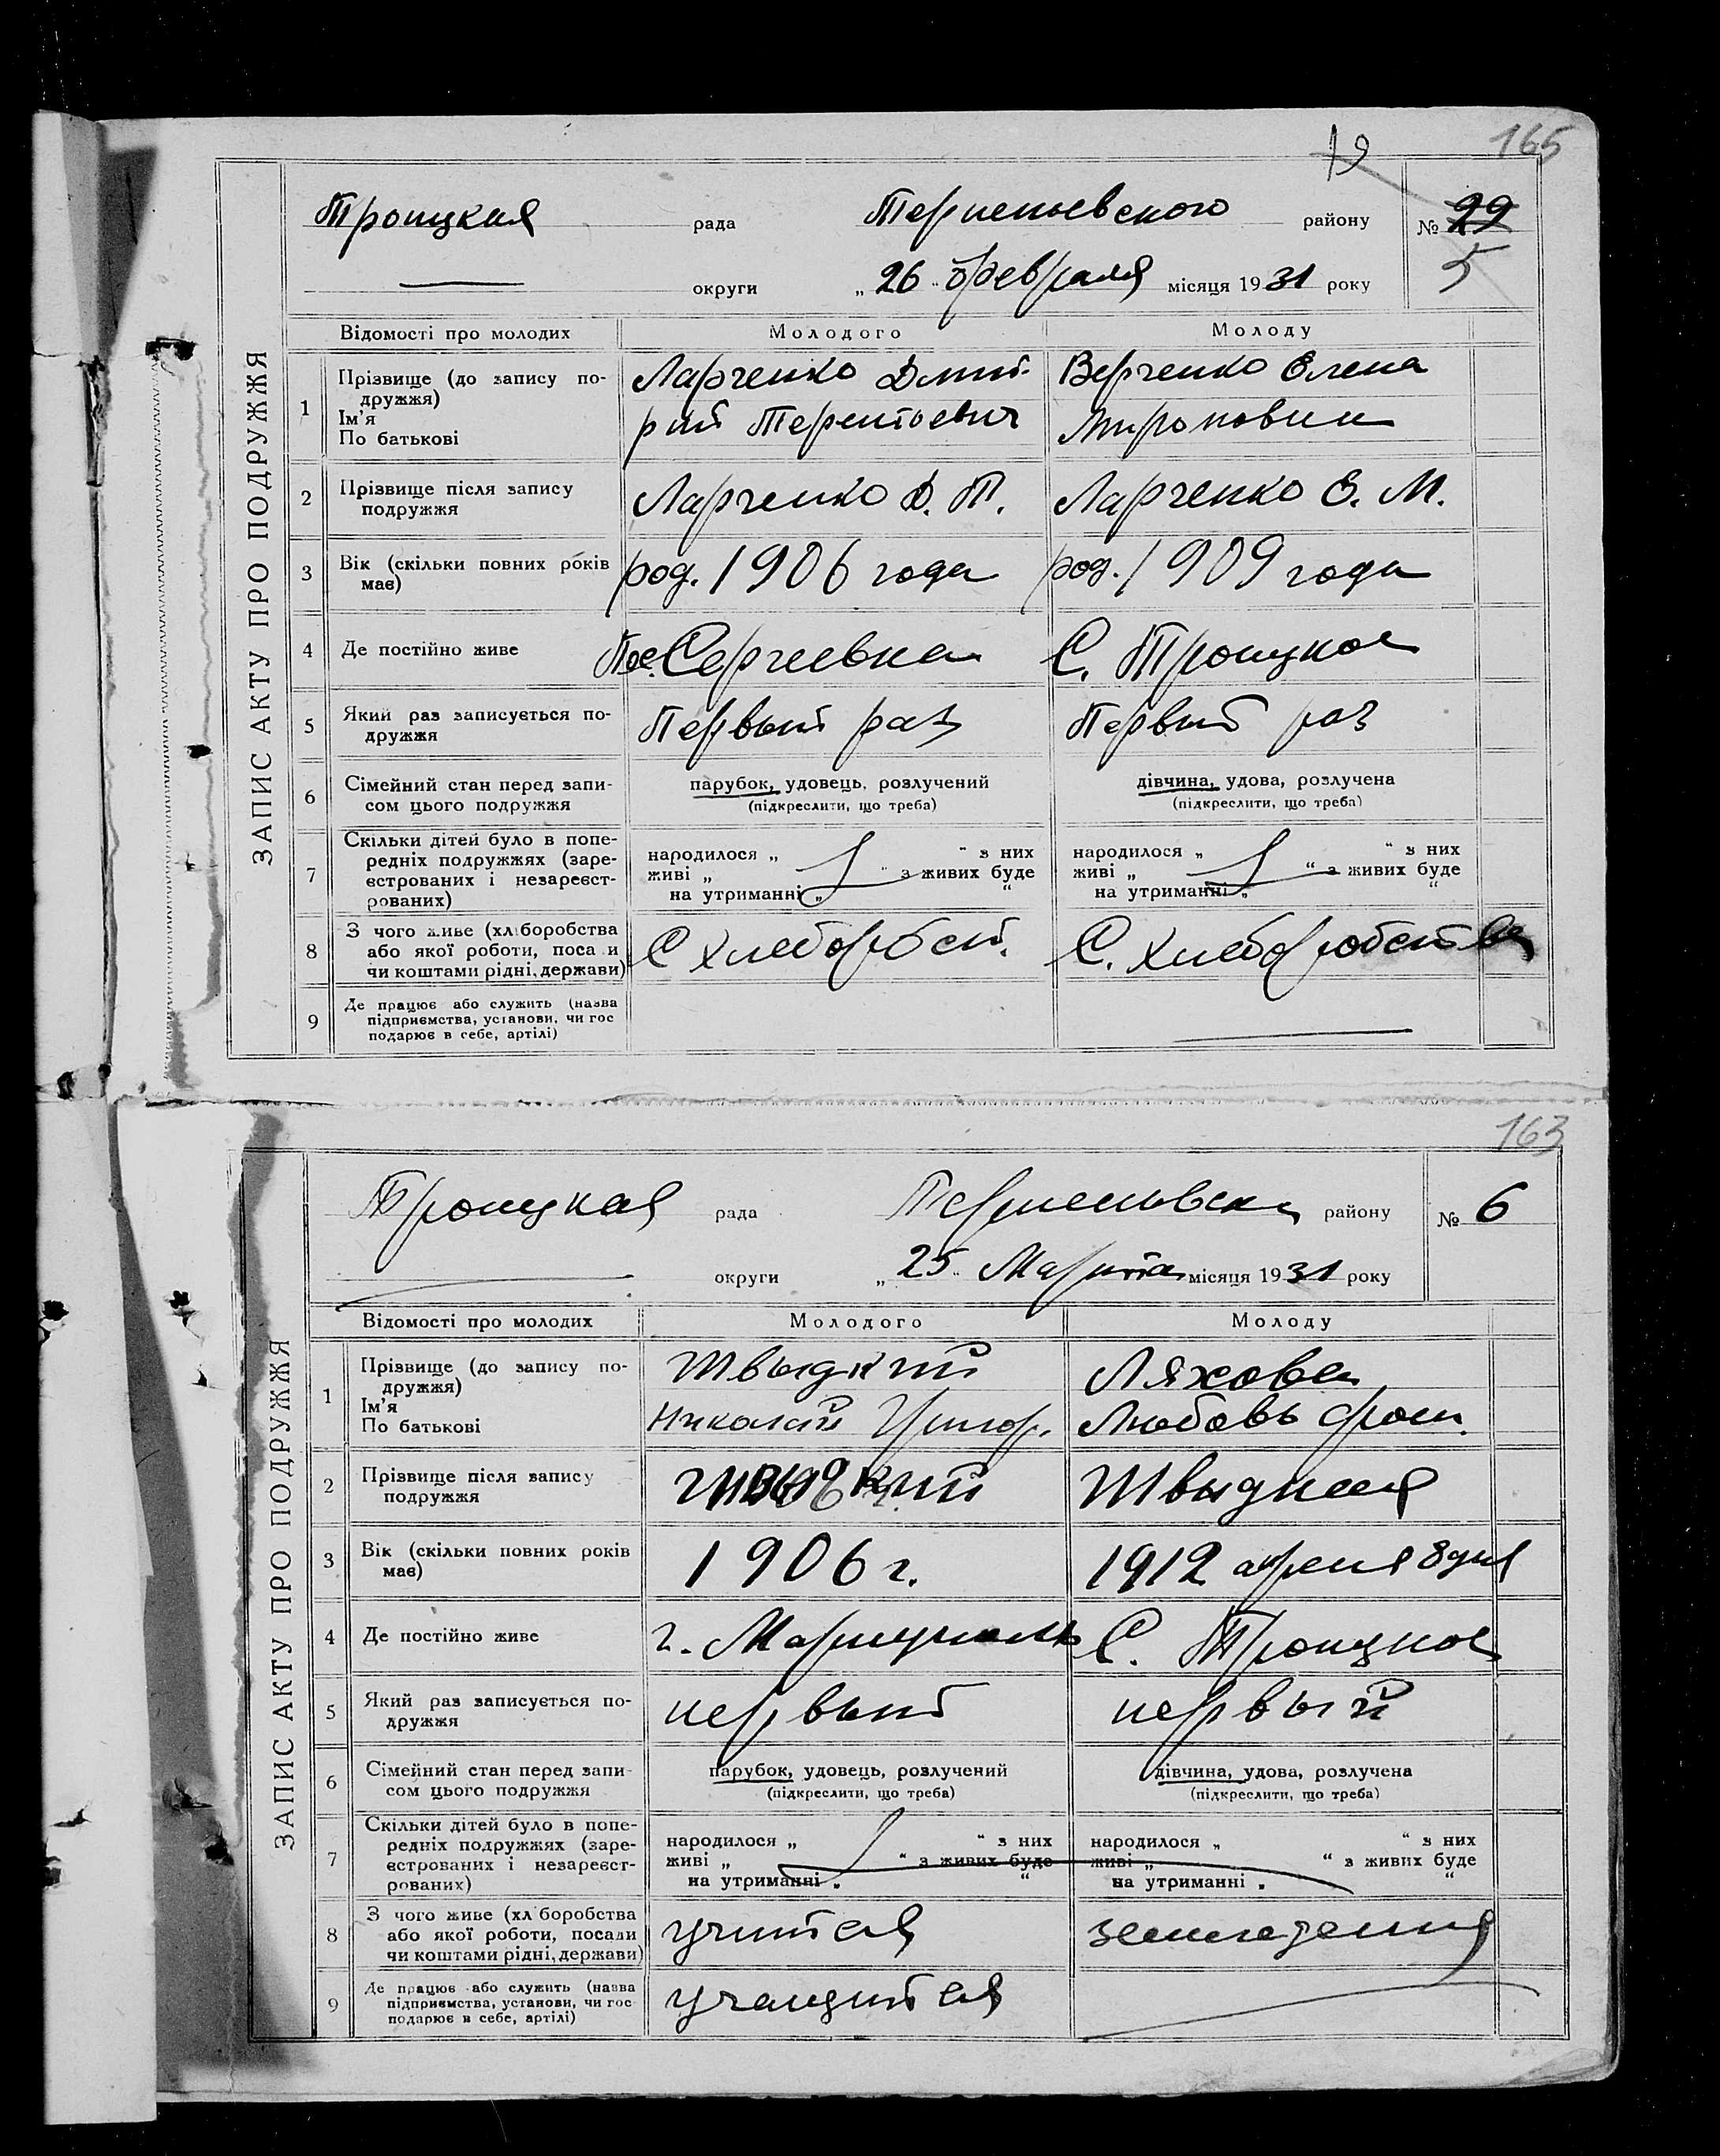 19
165
Троицкая рада Терпеньевского району № 29
5
округи „ 26 “ февраля місяця 1931 року
ЗАПИС АКТУ ПРО ПОДРУЖЖЯ
Відомості про молодих Молодого Молоду
1 Прізвище (до запису по-
дружжя)
Ім'я
По батькові
Ларченко Дмит-
рий Терентьевич
Верченко Елена
Мироновна
2 Прізвище після запису
подружжя
Ларченко Д. Т. Ларченко Е. М.
3 Вік (скільки повних років
має)
род. 1906 года род. 1909 года
4 Де постійно живе Пос. Сергеевка С. Троицкое
5 Який раз записується по-
дружжя
Первый раз Первый раз
6 Сімейний стан перед запи-
сом цього подружжя
парубок, удовець, розлучений
(підкреслити, що треба)
дівчина, удова, розлучена
(підкреслити, що треба)
7 Скільки дітей було в попе-
редніх подружжях (заре-
єстрованих і незареєст-
рованих)
народилося „ “ з них
живі „ “ з живих буде
на утриманні „ “
народилося „ “ з них
живі „ “ з живих буде
на утриманні „ “
8 З чого живе (хліборобства
або якої роботи, посади
чи коштами рідні, держави)
С хлеборобст. С. хлеборобства
9 Де працює або служить (назва
підприємства, установи, чи гос
подарює в себе, артілі)
163
Троицкая рада району № 6
округи „ 25 “ Марта місяця 1931 року
ЗАПИС АКТУ ПРО ПОДРУЖЖЯ
Відомості про молодих Молодого Молоду
1 Прізвище (до запису по-
дружжя)
Ім'я
По батькові
Швыдкий
Николай Григор.
Ляхова
Любовь
2 Прізвище після запису
подружжя
Швыдкий Швыдкая
3 Вік (скільки повних років
має)
1906 г. 1912 апреля 8 дня
4 Де постійно живе г. Мариуполь С. Троицкое
5 Який раз записується по-
дружжя
первый первый
6 Сімейний стан перед запи-
сом цього подружжя
парубок, удовець, розлучений
(підкреслити, що треба)
дівчина, удова, розлучена
(підкреслити, що треба)
7 Скільки дітей було в попе-
редніх подружжях (заре-
єстрованих і незареєст-
рованих)
народилося „ “ з них
живі „ “ з живих буде
на утриманні „ “
народилося „ “ з них
живі „ “ з живих буде
на утриманні „ “
8 З чого живе (хліборобства
або якої роботи, посади
чи коштами рідні, держави)
учителя земледелия
9 Де працює або служить (назва
підприємства, установи, чи гос
подарює в себе, артілі)